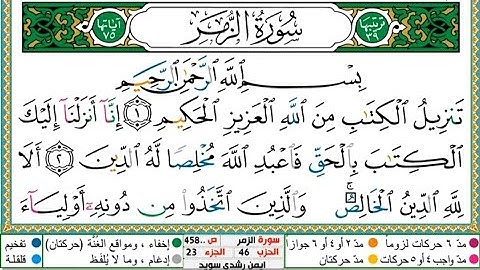 ترتيبها ٣٩
سُورَةُ الزُّمَرِ
آياتها ٧٥
بِسْمِ ٱللَّهِ ٱلرَّحْمَٰنِ ٱلرَّحِيمِ
تَنزِيلُ ٱلْكِتَٰبِ مِنَ ٱللَّهِ ٱلْعَزِيزِ ٱلْحَكِيمِ ١ إِنَّآ أَنزَلْنَآ إِلَيْكَ
ٱلْكِتَٰبَ بِٱلْحَقِّ فَٱعْبُدِ ٱللَّهَ مُخْلِصًا لَّهُ ٱلدِّينَ ٢ أَلَا
لِلَّهِ ٱلدِّينُ ٱلْخَالِصُ ۚ وَٱلَّذِينَ ٱتَّخَذُوا۟ مِن دُونِهِۦٓ أَوْلِيَآءَ
مدّ ٦ حركات لزوماً مدّ ٢ أو ٤ أو ٦ جوازاً
مدّ واجب ٤ أو ٥ حركات مدّ حركتان
سورة الزمر ص ..458
الحزب 46 الجزء 23
ايمن رشدي سويد
إخفاء، ومواقع الغُنَّة (حركتان) تفخيم
إدغام، وما لا يُلفَظ قلقلة